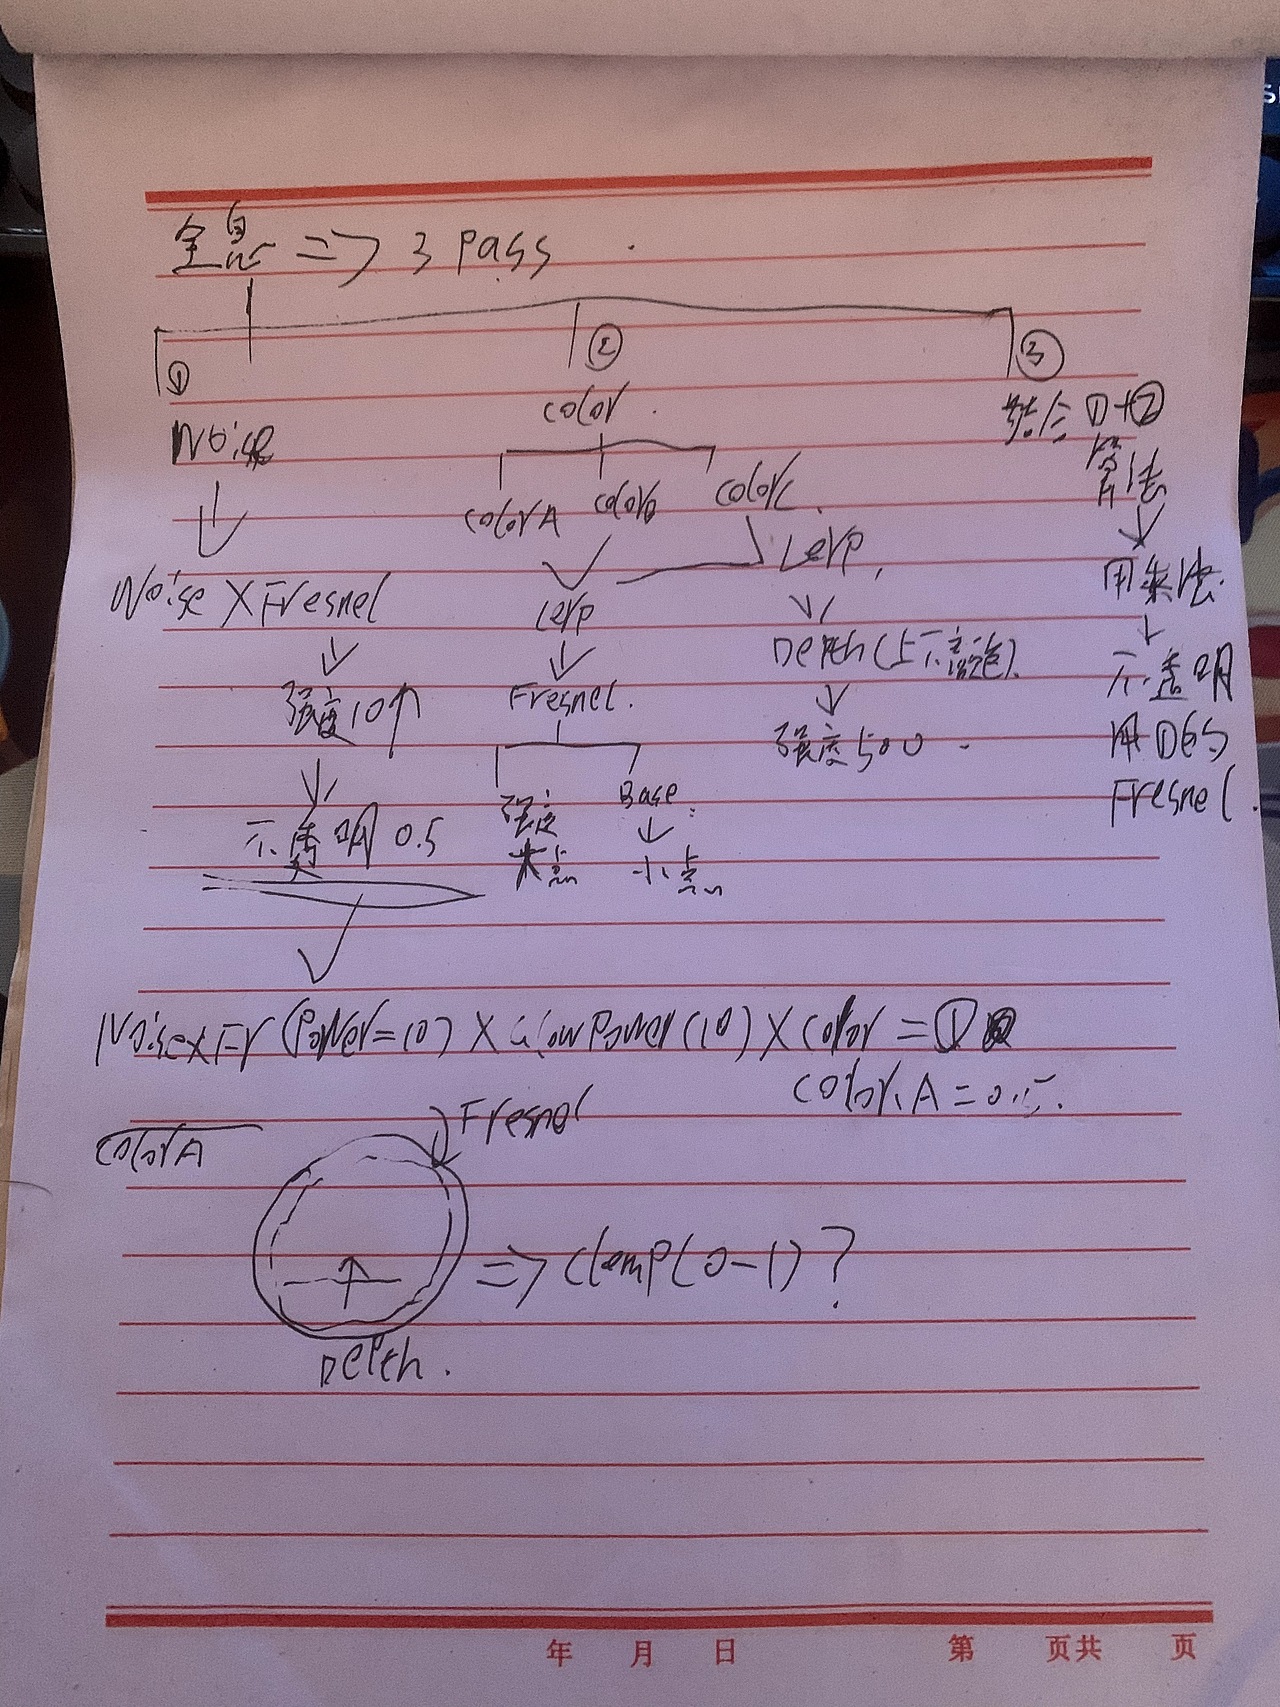 全息 => 3 pass
① ② ③
Noise
color
结合 ①+②
算法
colorA colorB colorC
Noise X Fresnel
Lerp
Lerp
用乘法
强度10↑
Fresnel
Depth(上不
不透明
用①的
Fresnel
强度500
不透明 0.5
强度
大点
Base
小点
Noise x Fr (Power=10) X GlowPower(10) X color = ①
color.A = 0.5
colorA
Fresnel
=> Clemp(0-1)?
Depth
年 月 日 第 页共 页